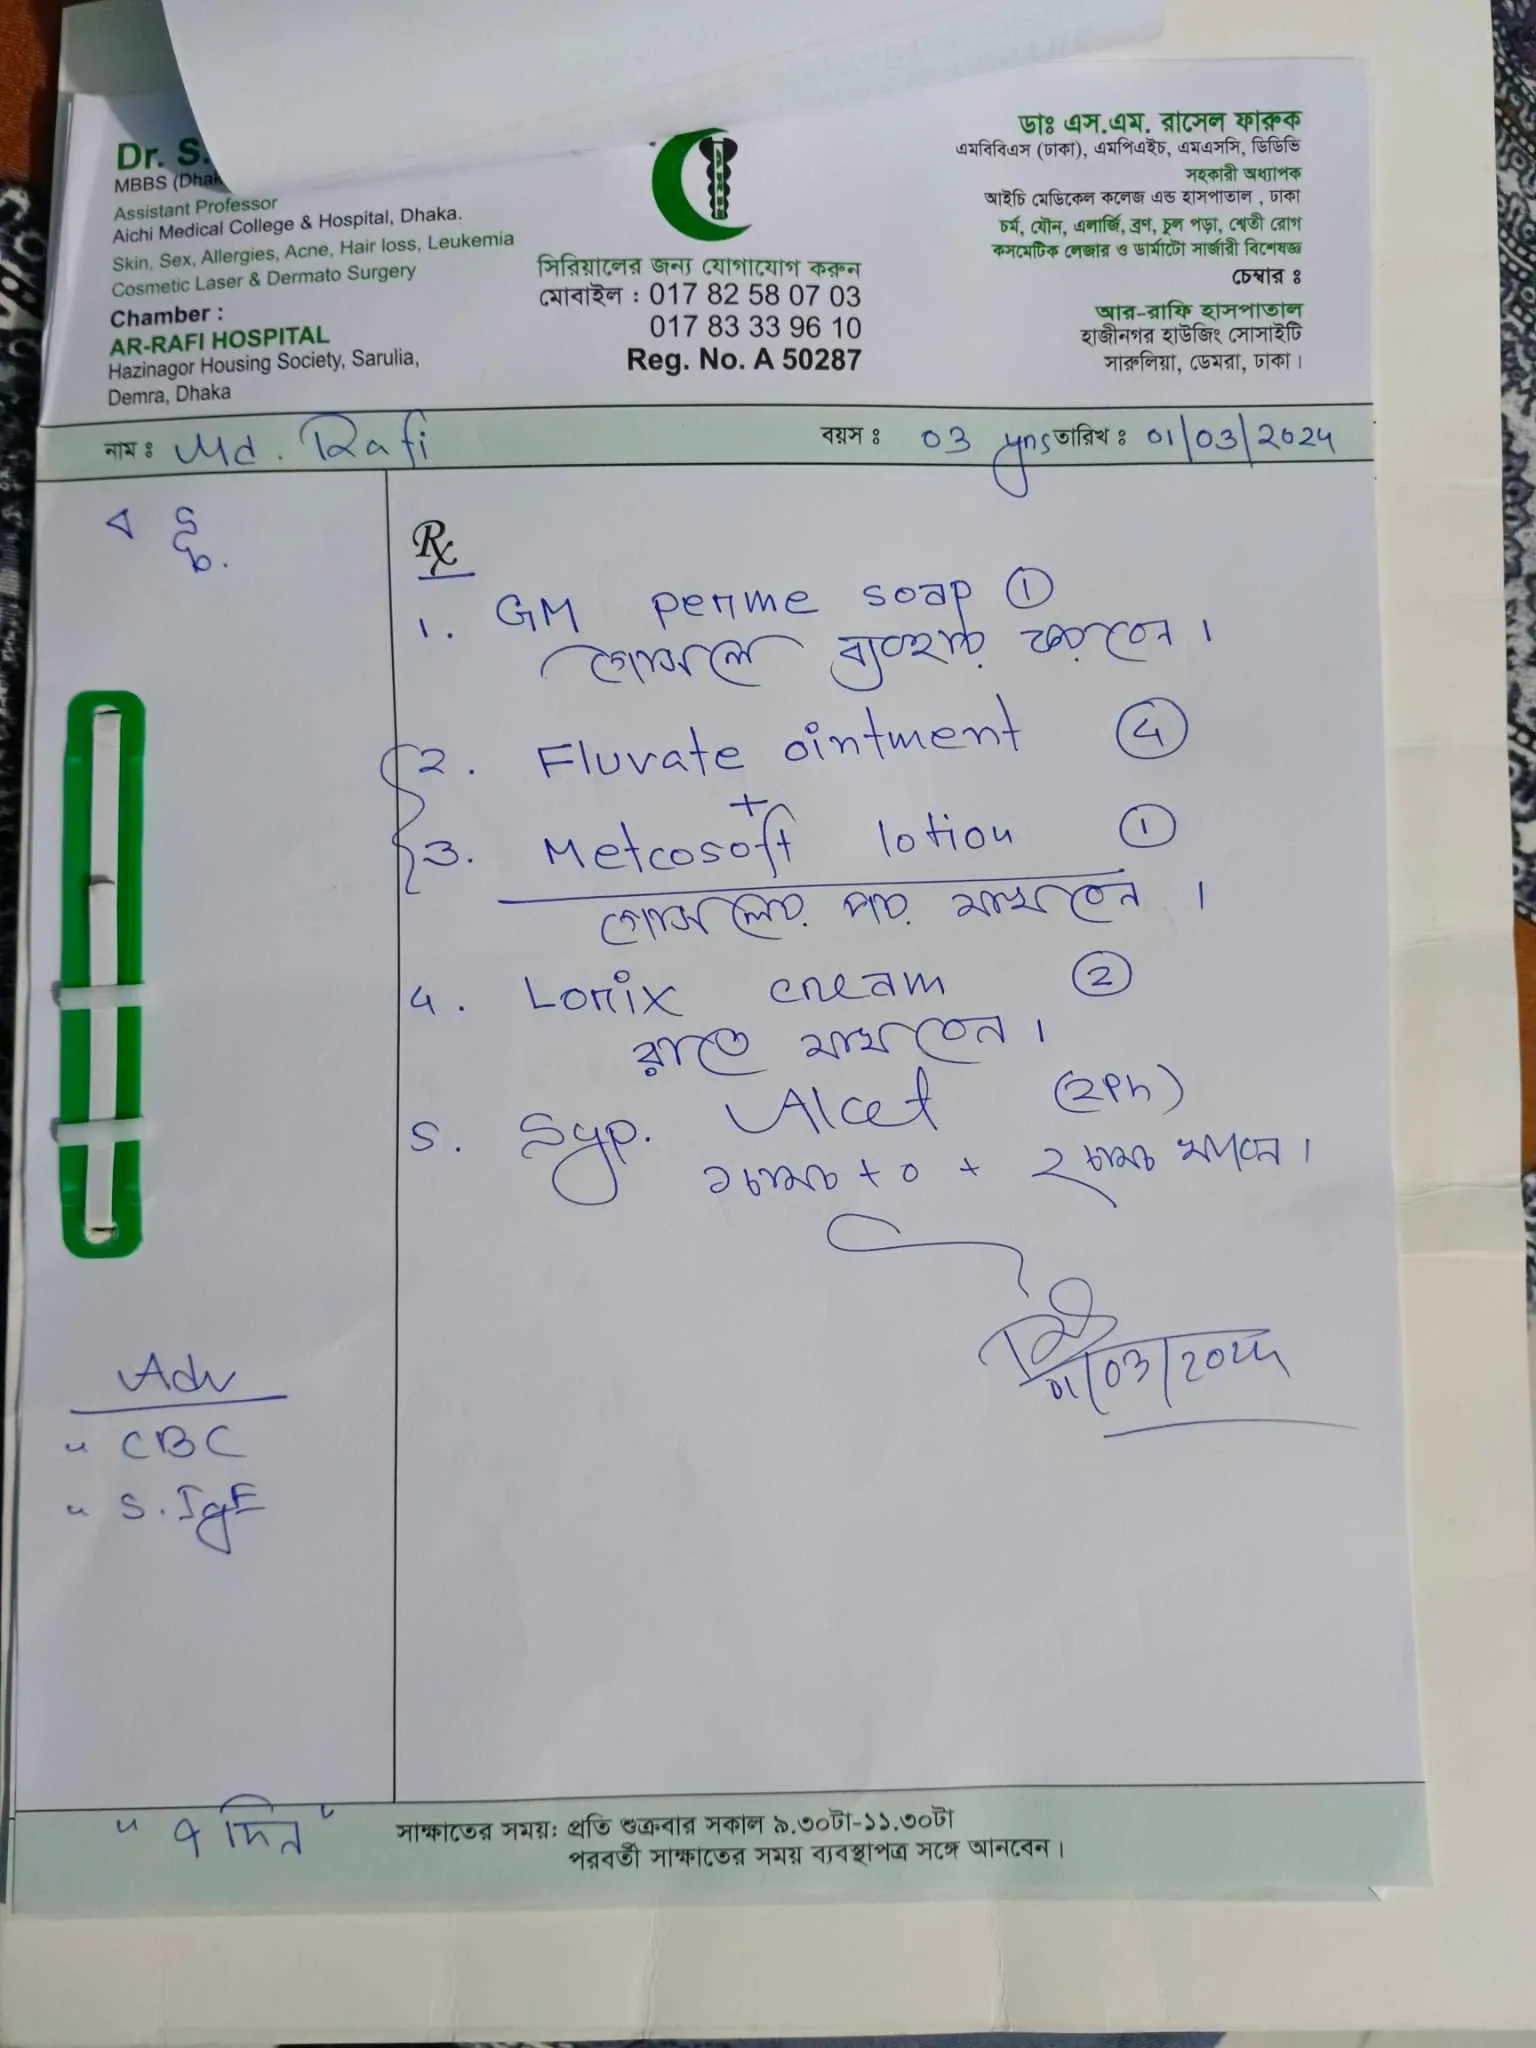 Dr. S.
MBBS (Dhak
Assistant Professor
Aichi Medical College & Hospital, Dhaka.
Skin, Sex, Allergies, Acne, Hair loss, Leukemia
Cosmetic Laser & Dermato Surgery
Chamber :
AR-RAFI HOSPITAL
Hazinagor Housing Society, Sarulia,
Demra, Dhaka
সিরিয়ালের জন্য যোগাযোগ করুন
মোবাইল : 017 82 58 07 03
017 83 33 96 10
Reg. No. A 50287
ডাঃ এস.এম. রাসেল ফারুক
এমবিবিএস (ঢাকা), এমপিএইচ, এমএসসি, ডিডিভি
সহকারী অধ্যাপক
আইচি মেডিকেল কলেজ এন্ড হাসপাতাল , ঢাকা
চর্ম, যৌন, এলার্জি, ব্রণ, চুল পড়া, শ্বেতী রোগ
কসমেটিক লেজার ও ডার্মাটো সার্জারী বিশেষজ্ঞ
চেম্বার ঃ
আর-রাফি হাসপাতাল
হাজীনগর হাউজিং সোসাইটি
সারুলিয়া, ডেমরা, ঢাকা ।
নাম ঃ Md. Rafi বয়স ঃ 03 yrs তারিখ ঃ 01/03/2024
Rx
1. GM perme soap 1
গোসলে ব্যবহার করবেন ।
2. Fluvate ointment 4
+
3. Metcosoft lotion 1
গোসলের পর মাখবেন ।
4. Lorix cream 2
রাতে মাখবেন ।
5. Syp. Alcet (2Ph)
১চামচ + ০ + ২চামচ খাবেন ।
01/03/2024
Adv
" CBC
" S. IgE
" ৭ দিন "
সাক্ষাতের সময়ঃ প্রতি শুক্রবার সকাল ৯.৩০টা-১১.৩০টা
পরবর্তী সাক্ষাতের সময় ব্যবস্থাপত্র সঙ্গে আনবেন ।